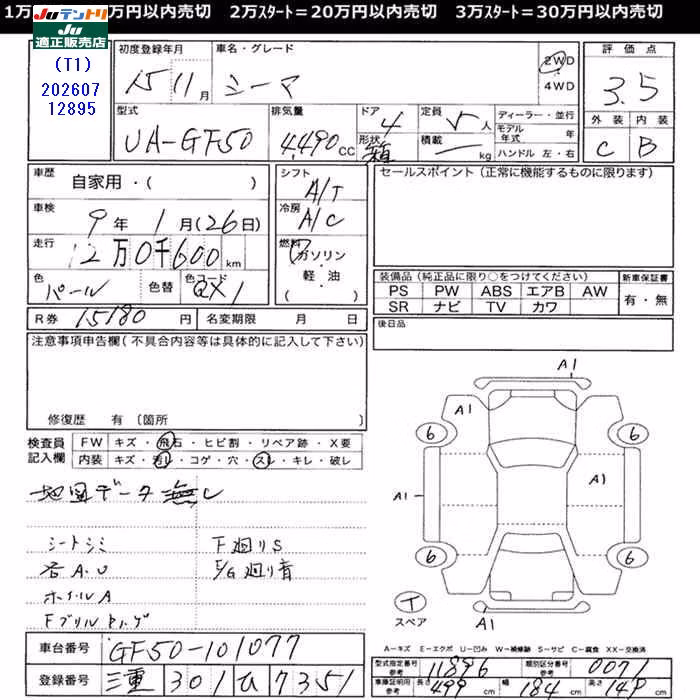 1万 万円以内売切 2万スタート=20万円以内売切 3万スタート=30万円以内売切
Juテントリ
Ju
適正販売店
(T1)
202607
12895
初度登録年月 車名・グレード
15 11月 シーマ
2WD
4WD
評価点
3.5
外装 内装
C B
型式 排気量 ドア 定員
UA-GF50 4,490cc 4 5人
形状 箱 積載 kg
ディーラー・並行
モデル年式 年
ハンドル 左・右
車歴 自家用・( )
車検 9年 1月(26日)
走行 12万0千600km
色 パール 色替 色コード QX1
シフト A/T
冷房 A/C
燃料 ガソリン
軽・油
( )
セールスポイント(正常に機能するものに限ります)
装備品(純正品に限り○をつけてください) 新車保証書
PS PW ABS エアB AW
SR ナビ TV カワ
有・無
R券 15180円 名変期限 月 日
後日品
注意事項申告欄(不具合内容等は具体的に記入して下さい)
修復歴 有〔箇所 〕
検査員記入欄
FW キズ・飛石・ヒビ割・リペア跡・X要
内装 キズ・汚れ・コゲ・穴・スレ・キレ・破レ
地図データ無し
シートシミ 下廻りS
各A.U E/G廻り音
ホイルA
Fグリルトリ
A1
A1
6 6
A1
A1
6 6
T
スペア
A1
車台番号 GF50-101077
登録番号 三重 301 ひ 7351
A-キズ E-エクボ U-凹み W-補修跡 S-サビ C-腐食 XX-交換済
型式指定番号 参考 11896 類別区分番号 参考 0071
車庫証明用 参考 長さ 499cm 幅 184cm 高さ 145cm